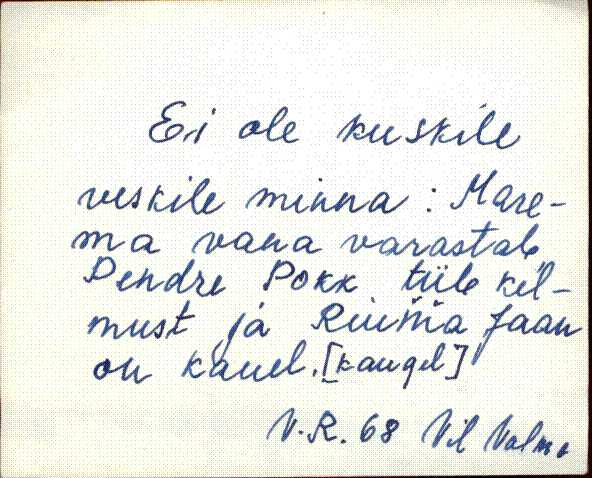 Ei ole kuskile
veskile minna : Mare-
ma vana varastab,
Pendre Pokk tüleb kül-
must ja Riiima Jaan
on kauel. [kaugel]
V.R. 68 Vil Valma